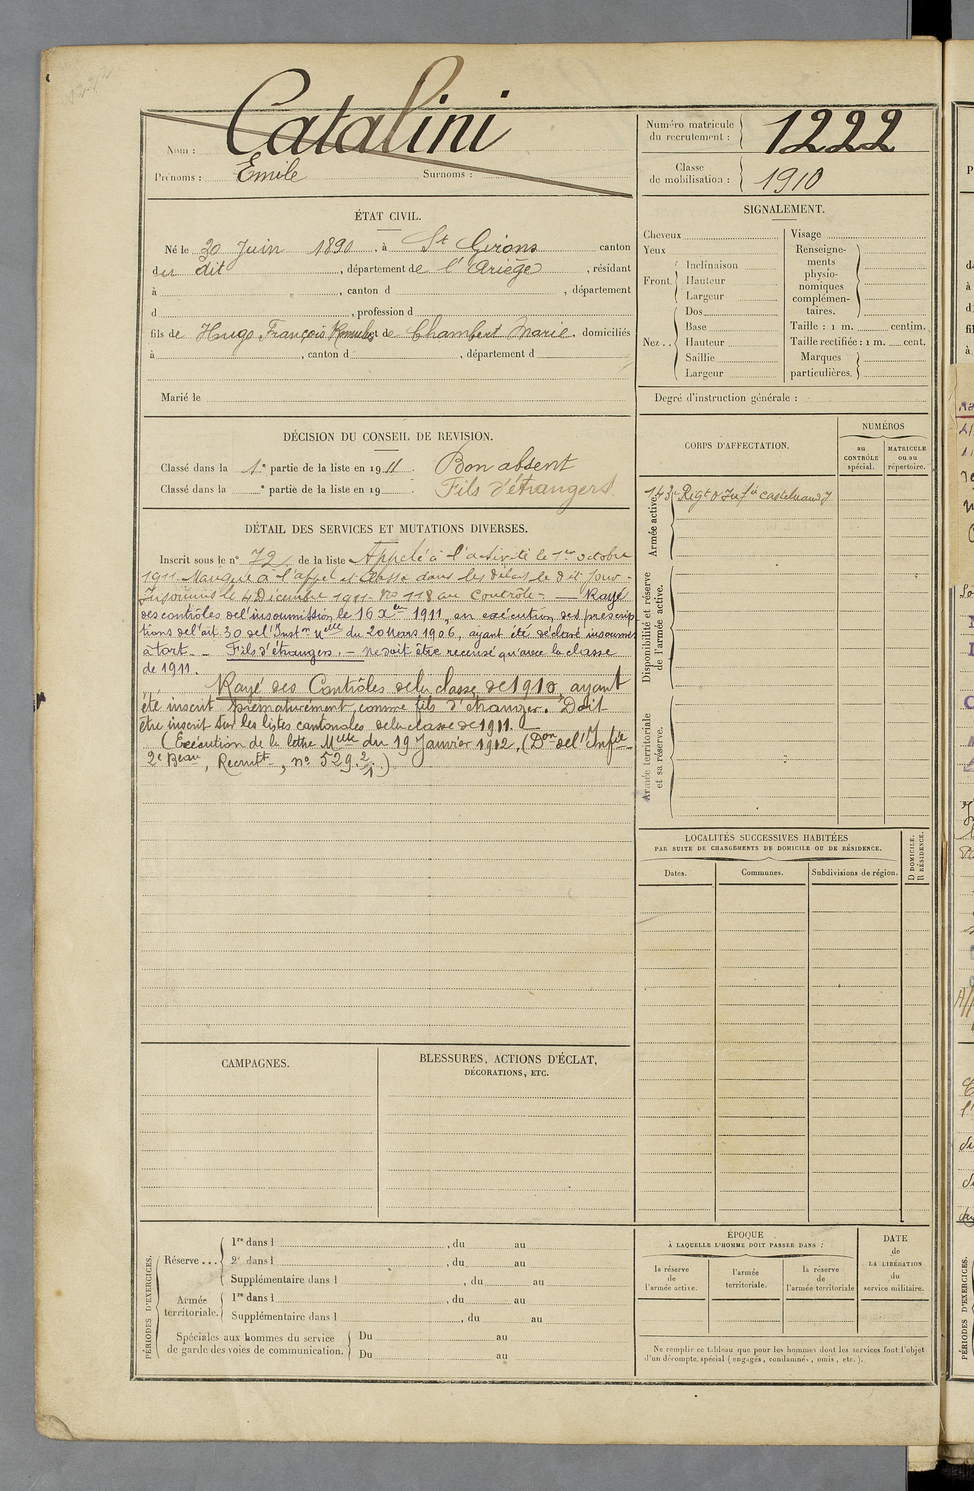 Catalini
Nom :
Prénoms : Emile Surnoms :
Numéro matricule
du recrutement : 1222
Classe
de mobilisation : 1910
ÉTAT CIVIL.
Né le 20 Juin 1890, à St Girons canton
du dit, département de l'Ariège, résidant
à , canton d , département
d , profession d
fils de Hugo François Romulus et de Chambert Marie. domiciliés
à , canton d , département d
Marié le
SIGNALEMENT.
Cheveux
Yeux
Front. Inclinaison
Hauteur
Largeur
Nez.. Dos
Base
Hauteur
Saillie
Largeur
Visage
Renseigne-
ments
physio-
nomiques
complémen-
taires.
Taille : 1 m. centim.
Taille rectifiée : 1 m. cent.
Marques
particulières.
Degré d'instruction générale :
DÉCISION DU CONSEIL DE REVISION.
Classé dans la 1e partie de la liste en 1911. Bon absent
Classé dans la e partie de la liste en 19 . Fils d'étrangers
CORPS D'AFFECTATION.
NUMÉROS
au
CONTRÔLE
spécial.
MATRICULE
ou au
répertoire.
Armée active.
143e Regt d'Infie Castelnaudy
Disponibilité et réserve
de l'armée active.
Armée territoriale
et sa réserve.
DÉTAIL DES SERVICES ET MUTATIONS DIVERSES.
Inscrit sous le n° 72 de la liste Appelé à l'activité le 1er octobre
1911. Manqué à l'appel et laissé dans les délais le dit jour.
Insoumis le 4 Décembre 1911. No 118 au Contrôle. — Rayé
des contrôles de l'insoumission, le 16 Xbre 1911, en exécution des prescrip
tions de l'art. 30 de l'Instn Melle du 20 Mars 1906, ayant été déclaré insoumis
à tort. - Fils d'étrangers. - Ne doit être recensé qu'avec la classe
de 1911.
Rayé des Contrôles de la classe de 1910, ayant
été inscrit prématurément comme fils d'étranger. Doit
être inscrit sur les listes cantonales de la classe de 1911.
(Exécution de la lettre Melle du 19 Janvier 1912, (Don de l'Infie
2e Beau, Recrutt, no 529.2/1.)
LOCALITÉS SUCCESSIVES HABITÉES
PAR SUITE DE CHANGEMENTS DE DOMICILE OU DE RÉSIDENCE.
Dates.
Communes.
Subdivisions de région.
D DOMICILE.
R RÉSIDENCE.
CAMPAGNES.
BLESSURES, ACTIONS D'ÉCLAT,
DÉCORATIONS, ETC.
PÉRIODES D'EXERCICES.
Réserve... 1re dans l , du au
2e dans l , du au
Supplémentaire dans l , du au
Armée
territoriale. 1re dans l , du au
Supplémentaire dans l , du au
Spéciales aux hommes du service
de garde des voies de communication. Du au
Du au
ÉPOQUE
À LAQUELLE L'HOMME DOIT PASSER DANS :
la réserve
de
l'armée active.
l'armée
territoriale.
la réserve
de
l'armée territoriale
DATE
de
LA LIBÉRATION
du
service militaire.
Ne remplir ce tableau que pour les hommes dont les services font l'objet
d'un décompte spécial (engagés, condamnés, omis, etc.).
PÉRIODES D'EXERCICES.